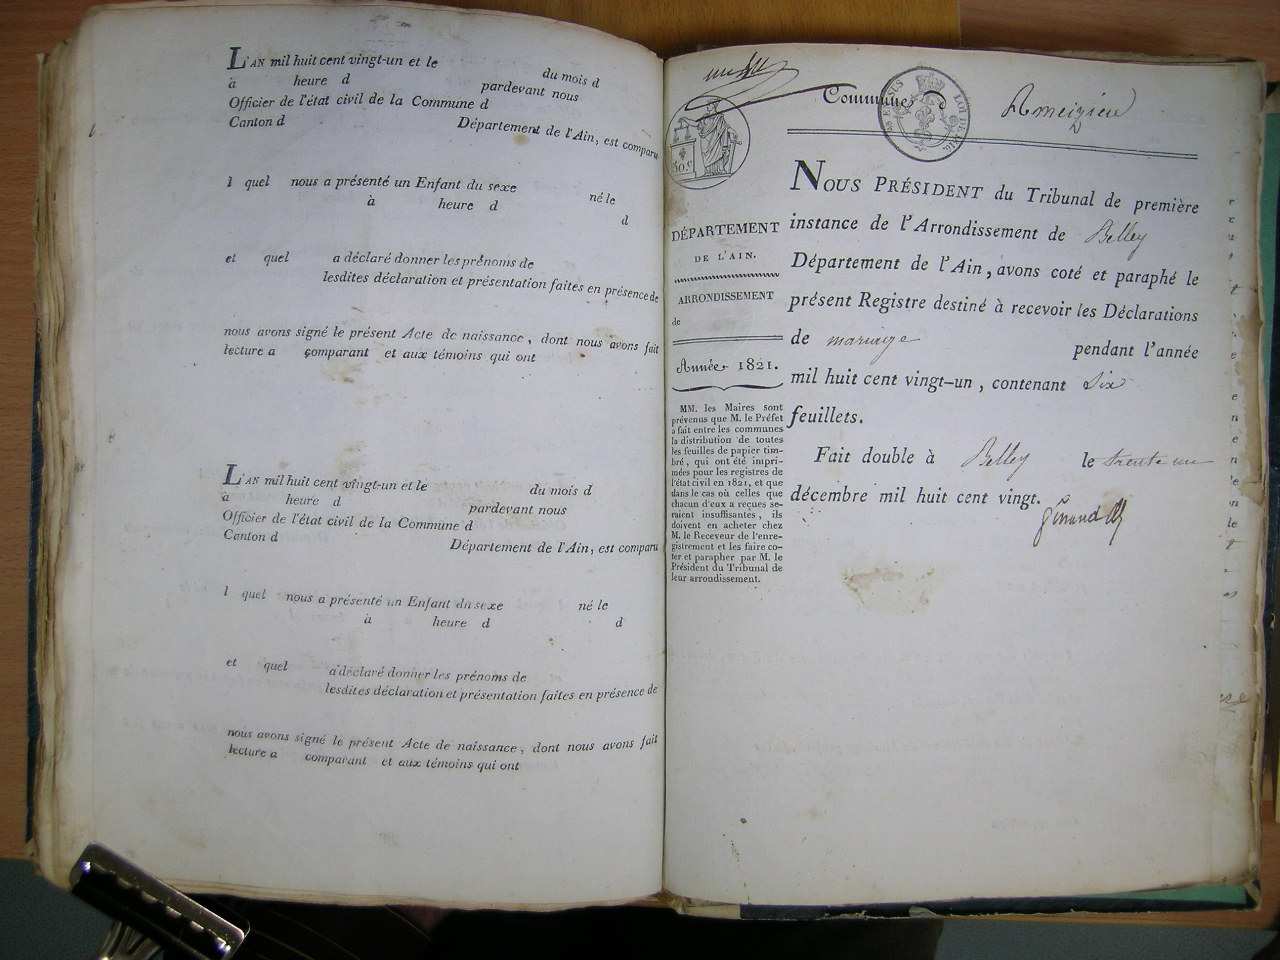 L'AN mil huit cent vingt-un et le du mois d
à heure d pardevant nous
Officier de l'état civil de la Commune d
Canton d Département de l'Ain, est comparu
l quel nous a présenté un Enfant du sexe né le
à heure d d
et quel a déclaré donner les prénoms de
lesdites déclaration et présentation faites en présence de
nous avons signé le présent Acte de naissance, dont nous avons fait
lecture a comparant et aux témoins qui ont
L'AN mil huit cent vingt-un et le du mois d
à heure d pardevant nous
Officier de l'état civil de la Commune d
Canton d Département de l'Ain, est comparu
l quel nous a présenté un Enfant du sexe né le
à heure d d
et quel a déclaré donner les prénoms de
lesdites déclaration et présentation faites en présence de
nous avons signé le présent Acte de naissance, dont nous avons fait
lecture a comparant et aux témoins qui ont
Commune d Ameizieu
50 c
DÉPARTEMENT
DE L'AIN.
ARRONDISSEMENT
de
Année 1821.
MM. les Maires sont
prévenus que M. le Préfet
a fait entre les communes
la distribution de toutes
les feuilles de papier tim-
bré, qui ont été impri-
mées pour les registres de
l'état civil en 1821, et que
dans le cas où celles que
chacun d'eux a reçues se-
raient insuffisantes, ils
doivent en acheter chez
M. le Receveur de l'enre-
gistrement et les faire co-
ter et parapher par M. le
Président du Tribunal de
leur arrondissement.
NOUS PRÉSIDENT du Tribunal de première
instance de l'Arrondissement de Belley
Département de l'Ain, avons coté et paraphé le
présent Registre destiné à recevoir les Déclarations
de mariage pendant l'année
mil huit cent vingt-un, contenant Six
feuillets.
Fait double à Belley le trente un
décembre mil huit cent vingt.